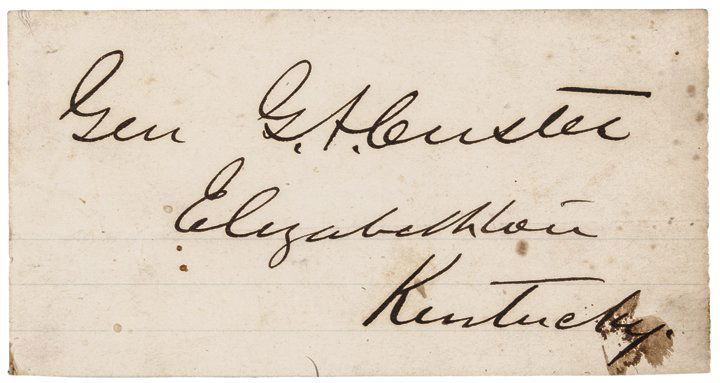 Gen G. A. Custer
Elizabethtown
Kentucky.